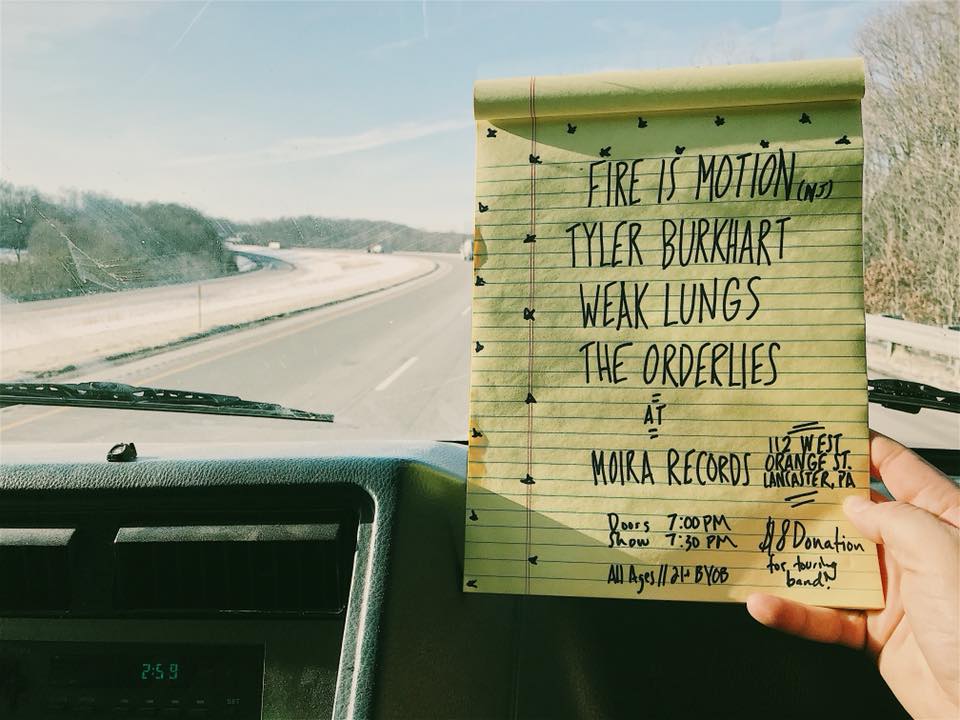 FIRE IS MOTION (NJ)
TYLER BURKHART
WEAK LUNGS
THE ORDERLIES
AT
MOIRA RECORDS
112 WEST
ORANGE ST.
LANCASTER, PA
Doors 7:00 PM
Show 7:30 PM
All Ages // 21+ BYOB
$8 Donation
for touring
band!
2:59
SET